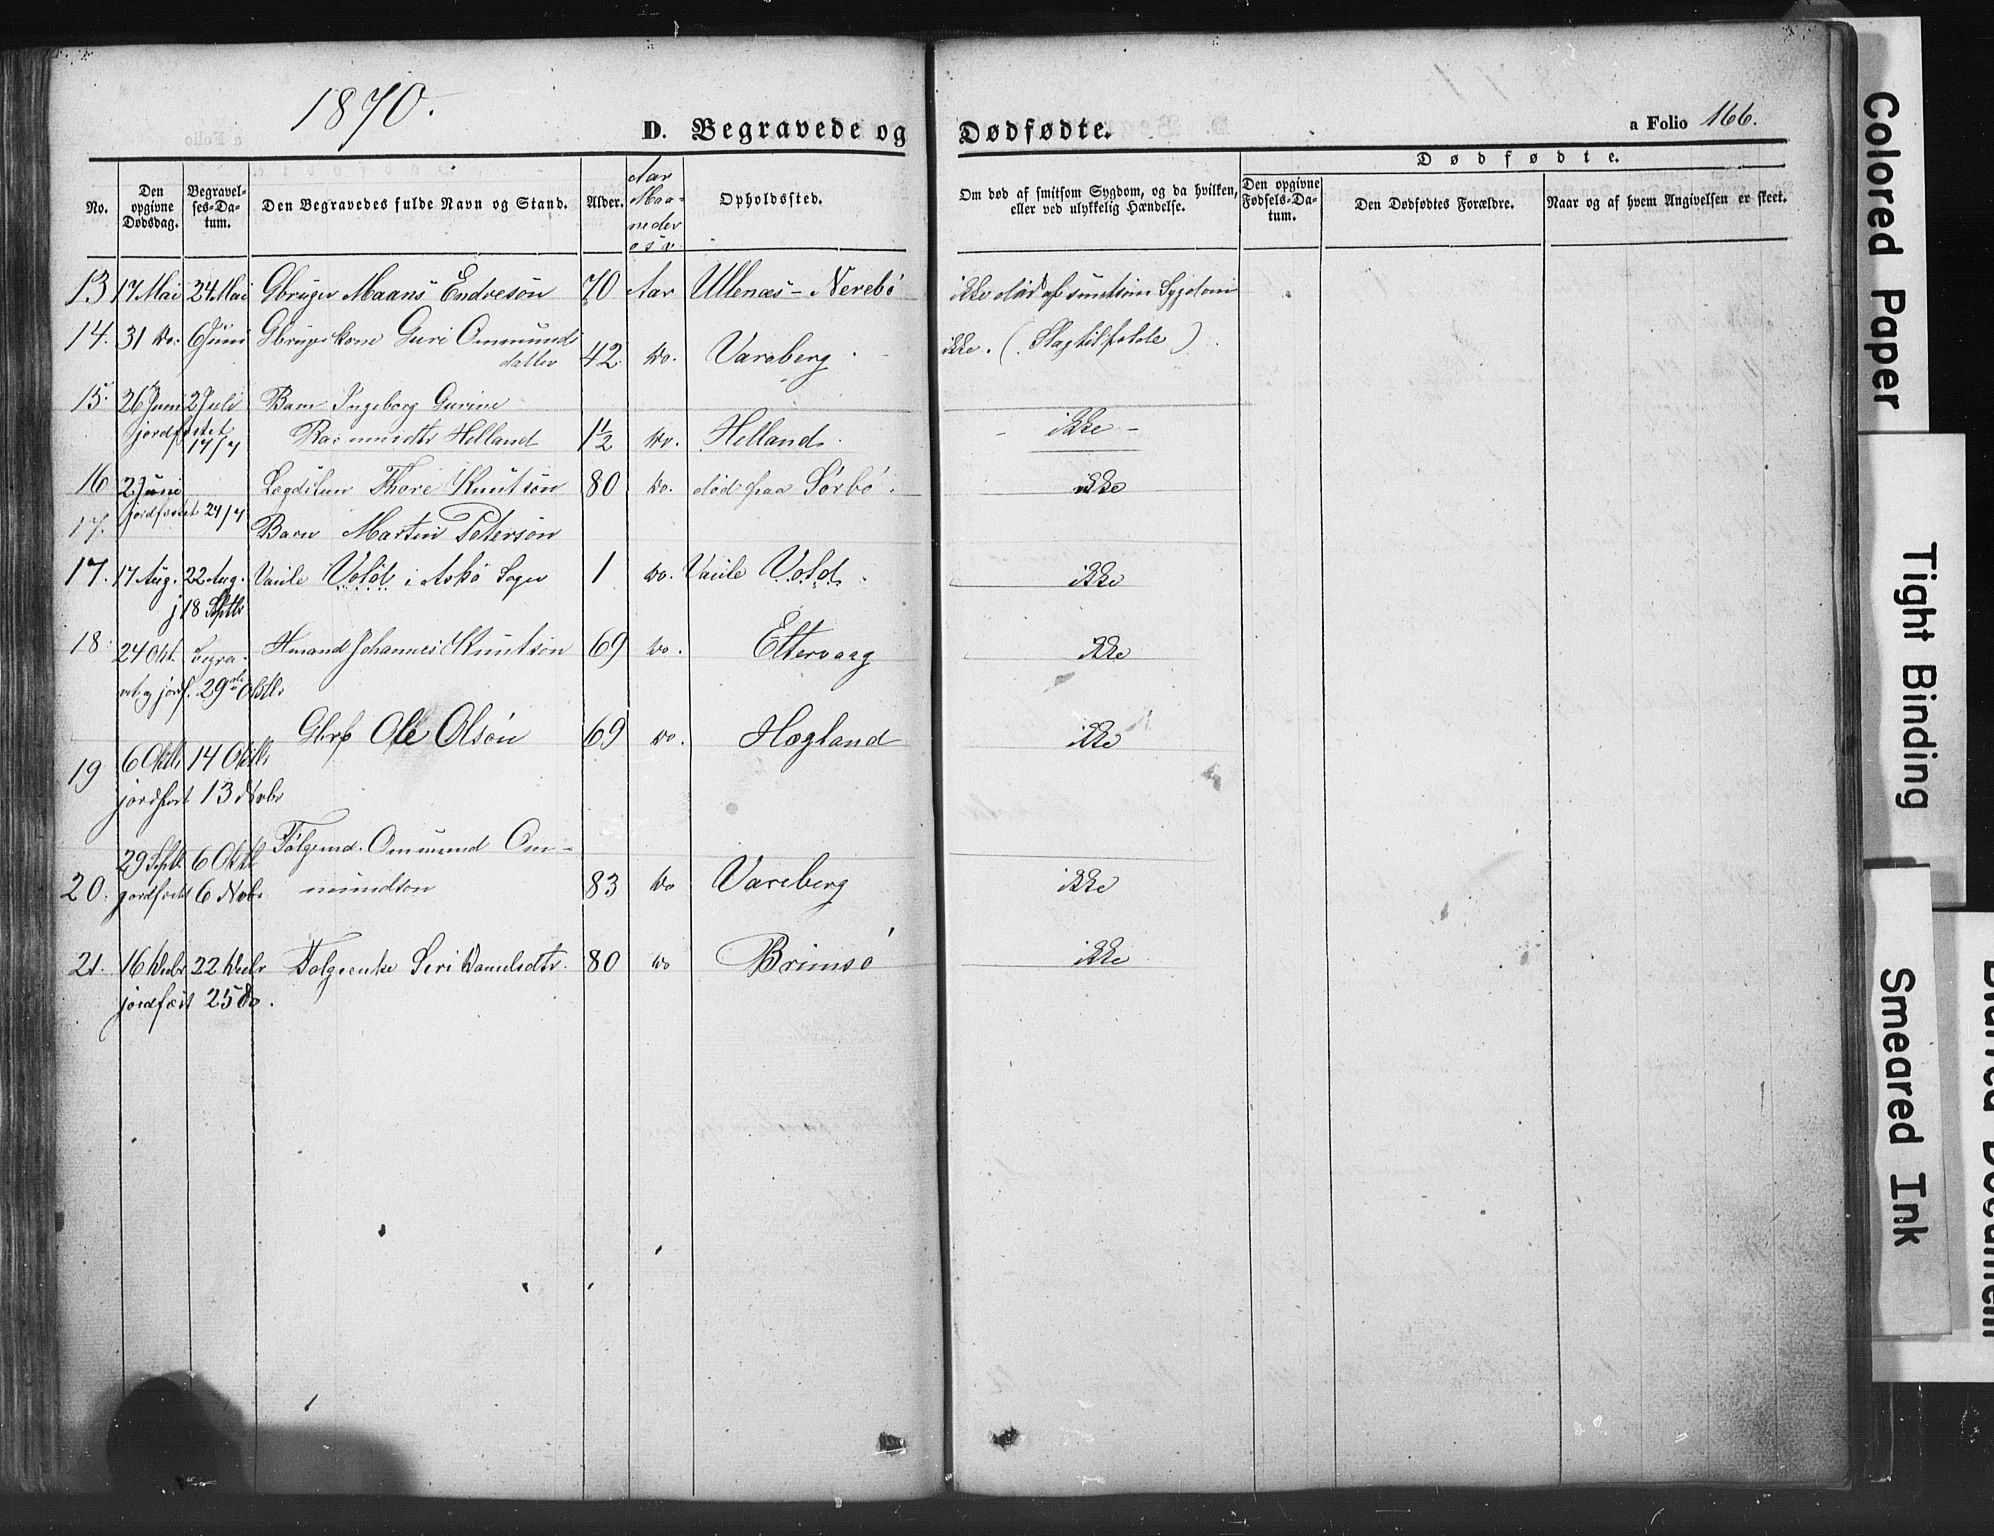 1870.
D. Begravede og Dødfødte.
a Folio 166.
No.
Den opgivne Dødsdag.
Begravelses-Datum.
Den Begravedes fulde Navn og Stand.
Alder.
Aar Maaneder osv
Opholdssted.
Om død af smitsom Sygdom, og da hvilken, eller ved ulykkelig Hændelse.
Dødfødte.
Den opgivne Fødsels-Datum.
Den Dødfødtes Forældre.
Naar og af hvem Angivelsen er skeet.
13 17 Mai 24 Mai Gbruger Maans Endresøn 70 Aar Ullenæs - Nerebø ikke død af smitsom Sygdom
14. 31 do. 6 Juni Gbruger kone Guri Ommunds
datter 42 do. Vareberg ikke. (Slagtilfælde)
15. 26 Juni 2 Juli Barn Ingeborg Gurine
jordfæstet 17/7 Rasmusdtr Helland 1 1/2 do. Helland. - ikke -
16 2 Juni Lægdslem Thore Knutsøn 80 do. død paa Sørbø. ikke
jordfæstet 24/7
17. Barn Martin Petersøn
17. 17 Aug. 22 Aug. Vold i Askø Sogn 1 do. Vold. ikke
j 18 Septbr
18. 24 Okt. begra- Hmand Johannes Knutsøn 69 do. Ettervaag ikke
vet og jordf. 29de Oktbr
Gbrf Ole Olsøn 69 do. Hægland ikke
19 6 Oktbr 14 Oktbr
jordfæst 13 Nvbr
Følgemd. Ommund Om-
29 Septb. 6 Oktbr
20. jordfæstet 6 Nvbr mundsøn 83 do Vareberg ikke
21. 16 Decbr 22 Decbr Følgeenke Siri Danielsdtr. 80 do Brimsø ikke
jordfæst 25 do.
Colored Paper
Tight Binding
Smeared Ink